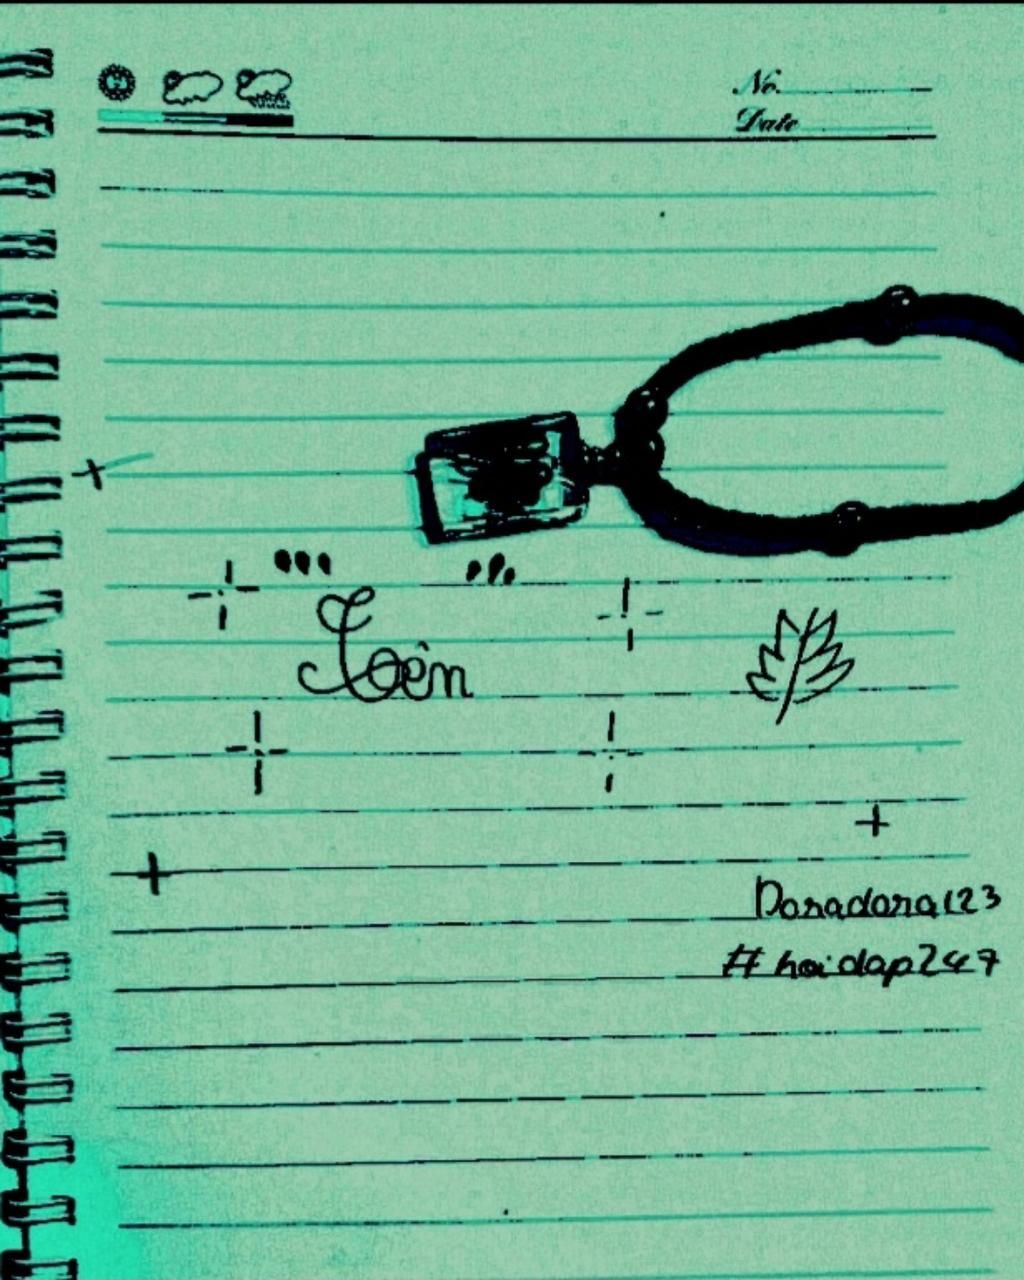 No.
Date
Doradora123
#hoidap247